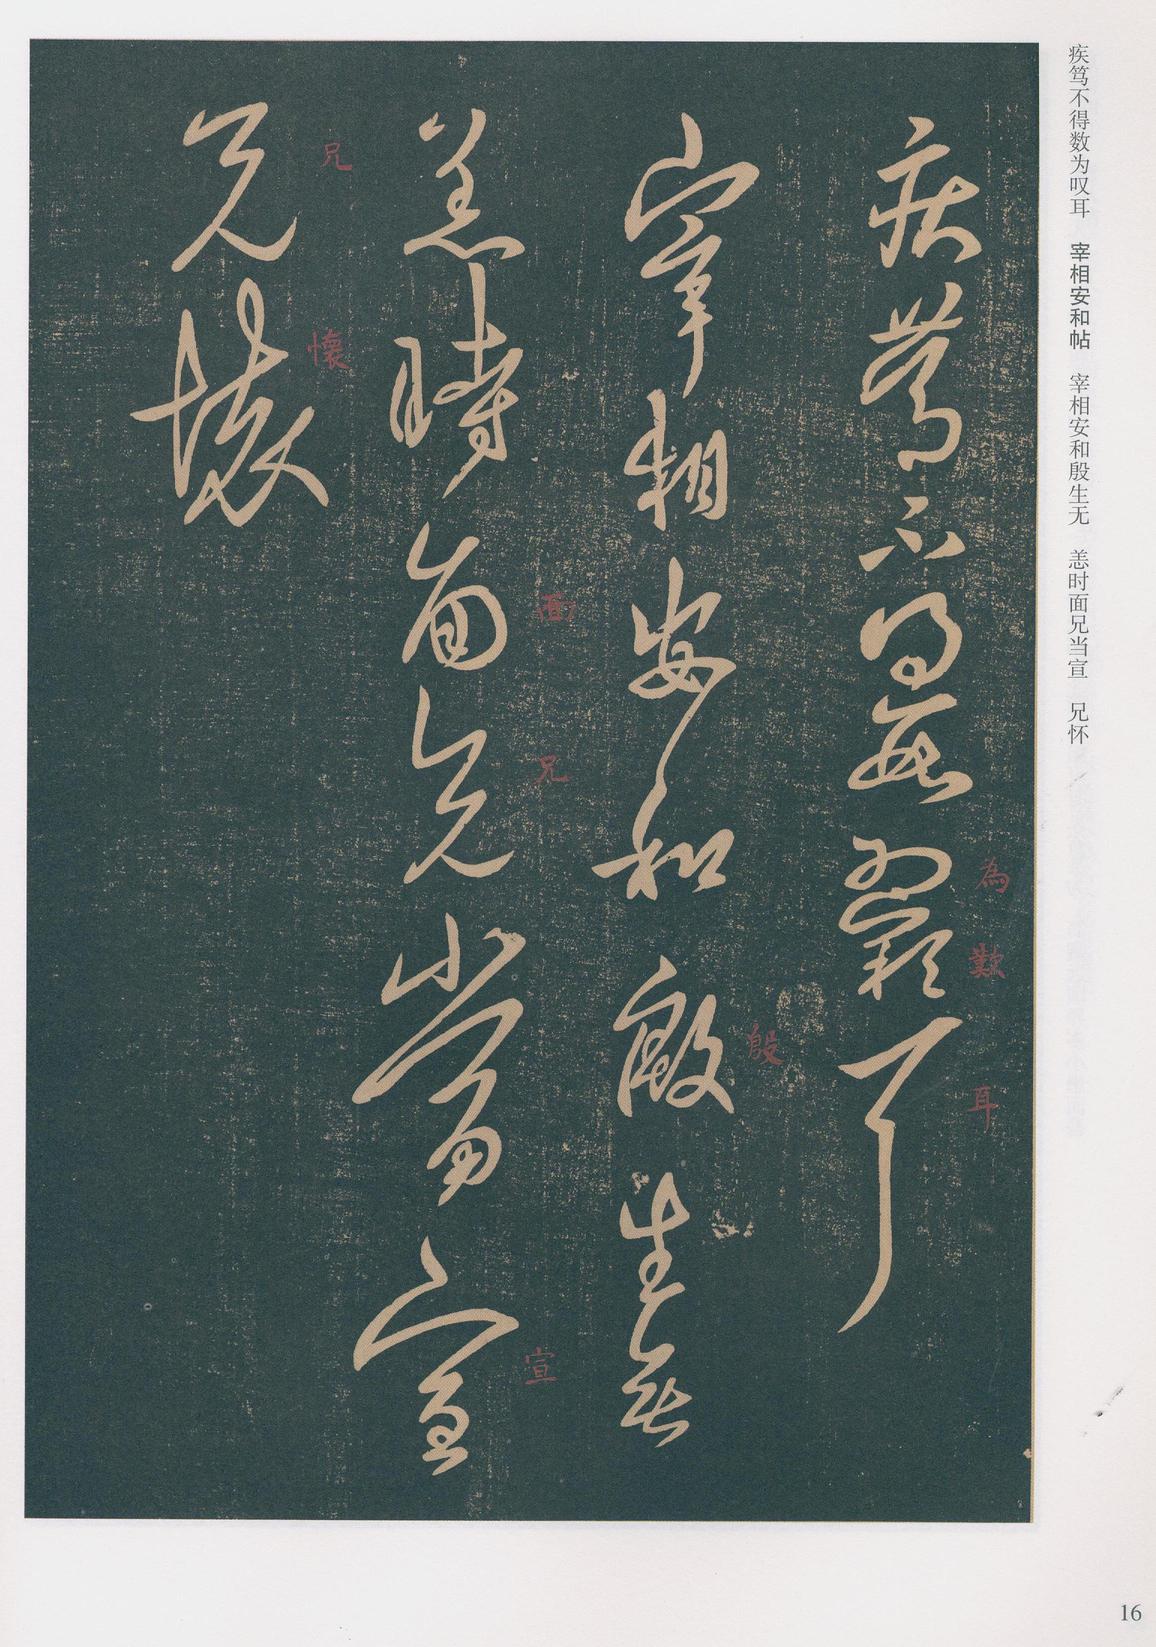 疾笃不得数为叹耳　宰相安和帖　宰相安和殷生无　恙时面兄当宣　兄怀
疾篤不得數為歎耳
為
歎
耳
宰相安和殷生無
殷
恙時面兄當宣
面
兄
宣
兄懷
兄
懷
16